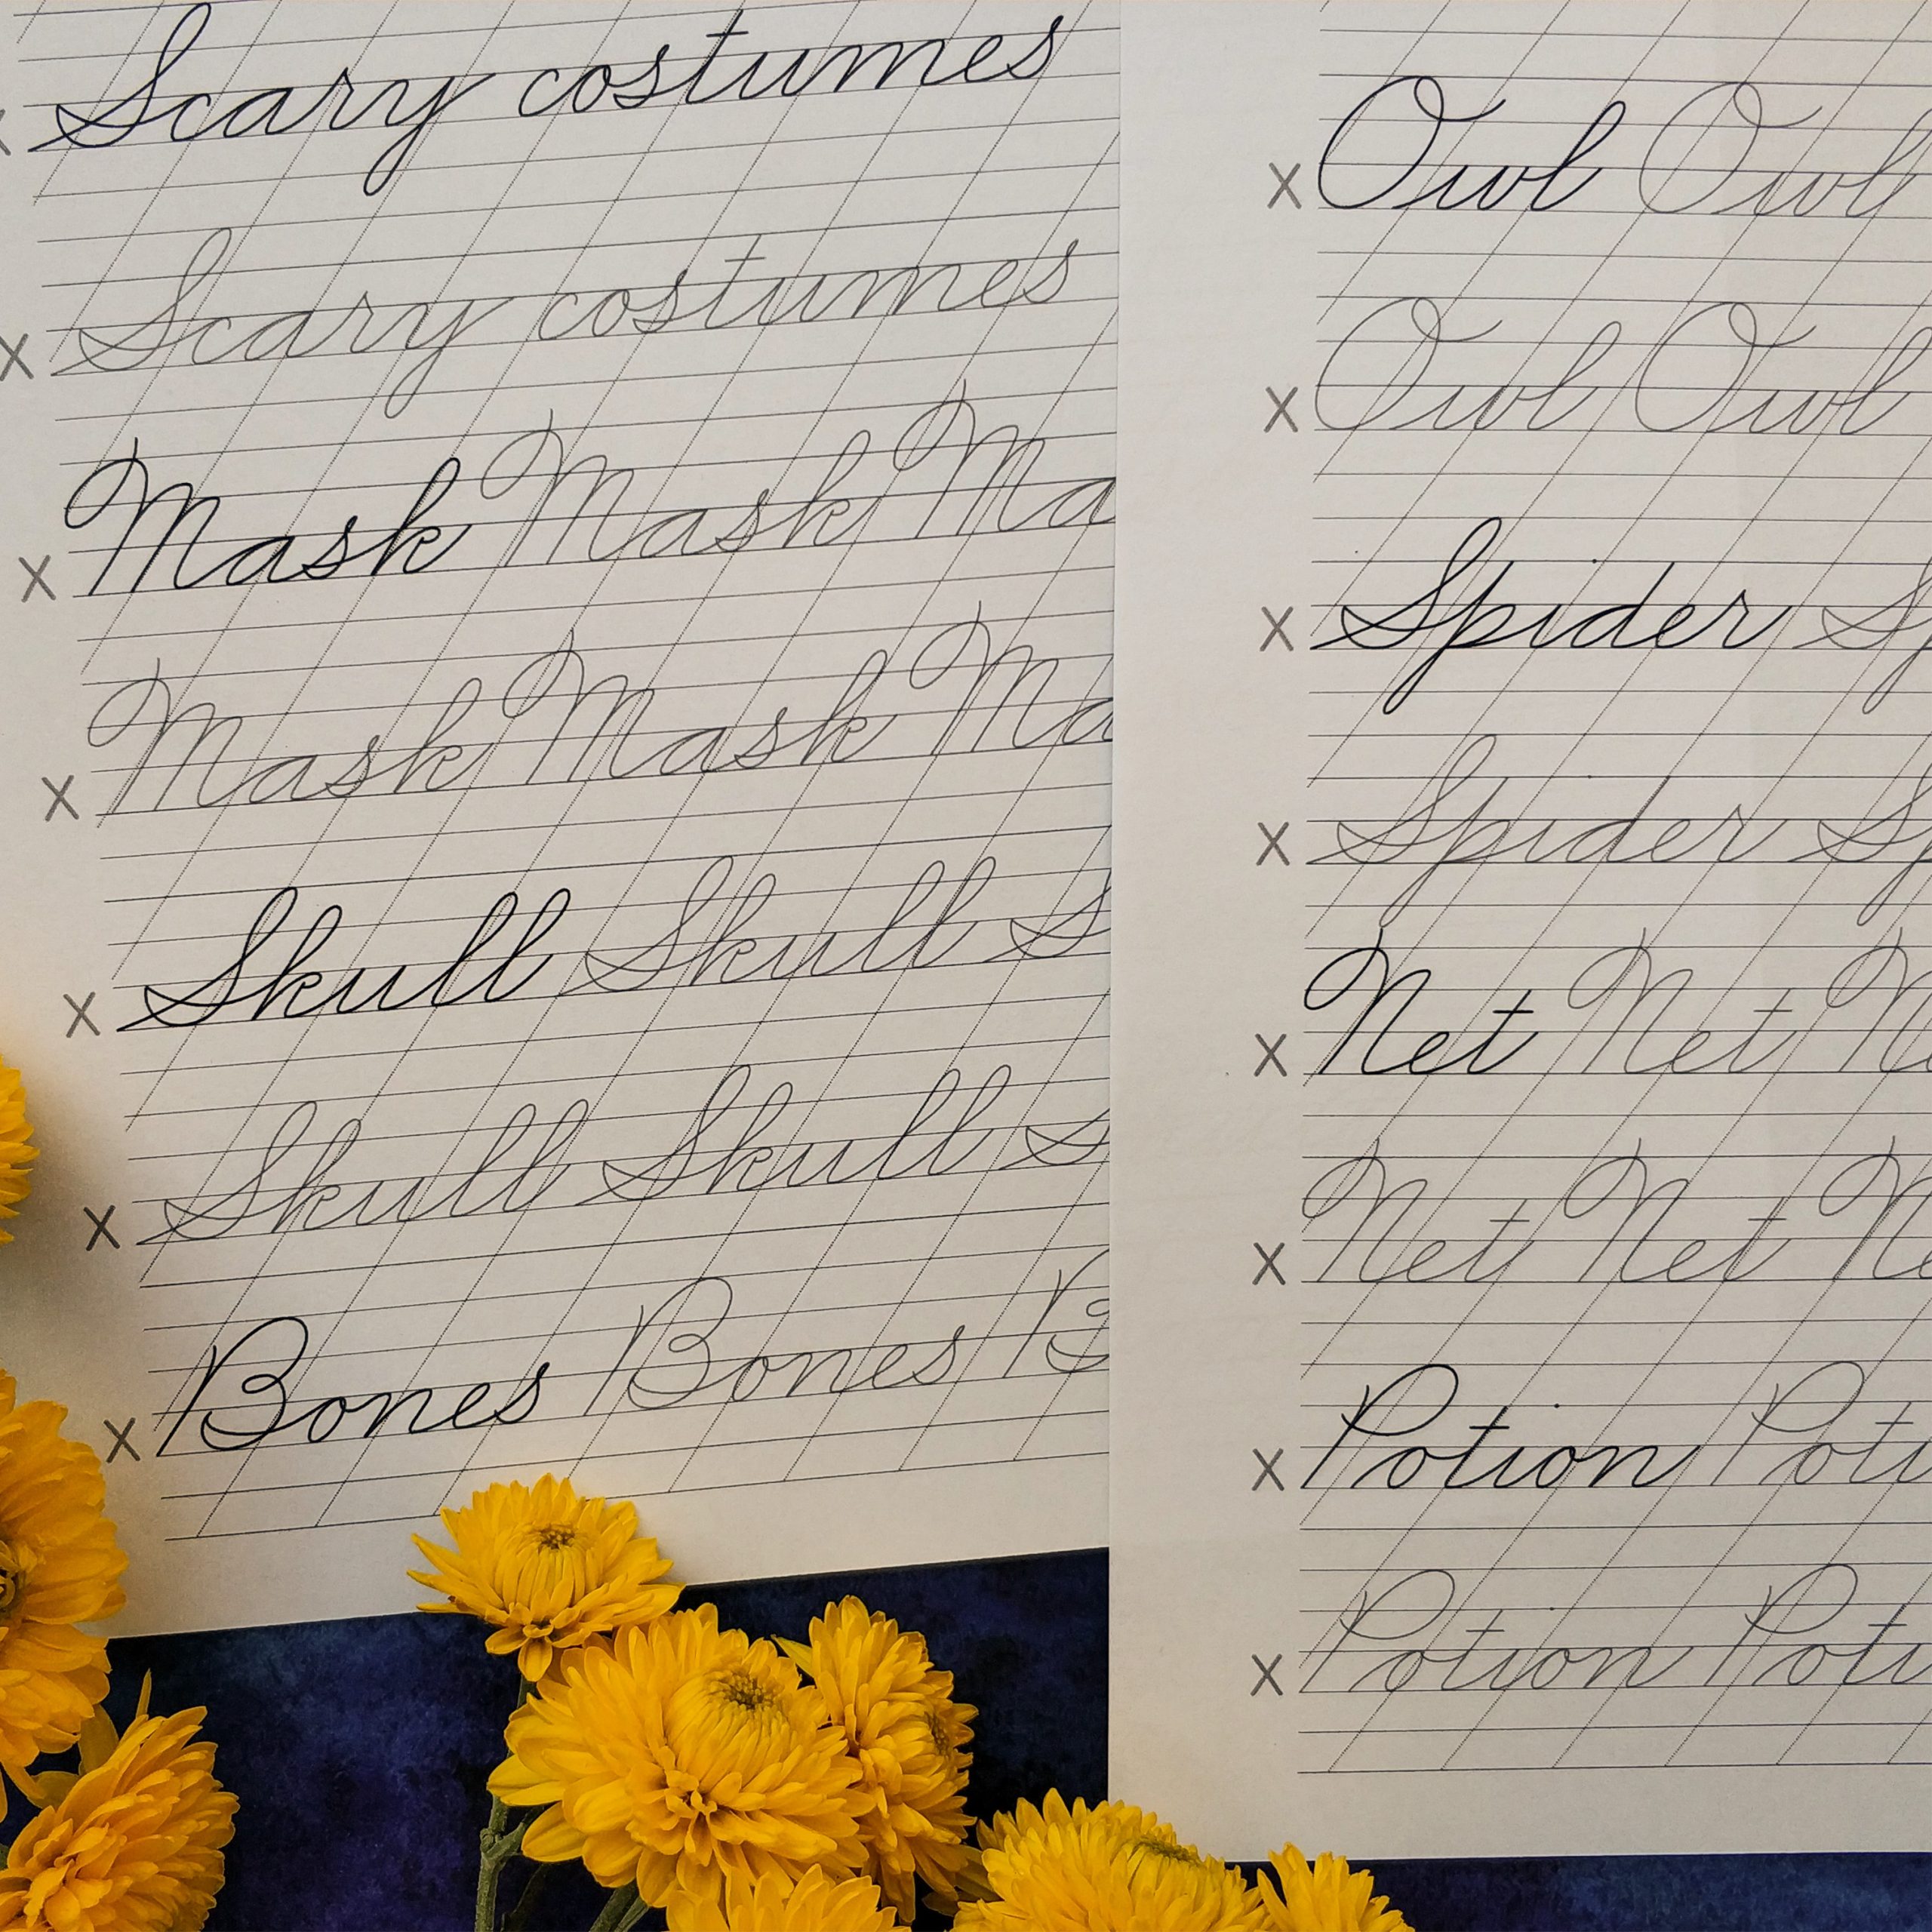 x Scary costumes
x Scary costumes
x Mask Mask Ma
x Mask Mask Ma
x Skull Skull S
x Skull Skull S
x Bones Bones B
x Owl Owl
x Owl Owl
x Spider Sp
x Spider Sp
x Net Net N
x Net Net Ne
x Potion Poti
x Potion Poti